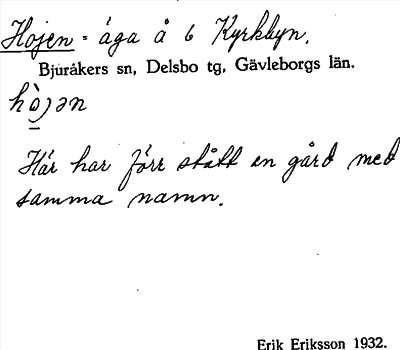 Hojen = äga å 6 Kyrkbyn.
Bjuråkers sn, Delsbo tg, Gävleborgs län.
hòjən
Här har förr stått en gård med
samma namn.
Erik Eriksson 1932.